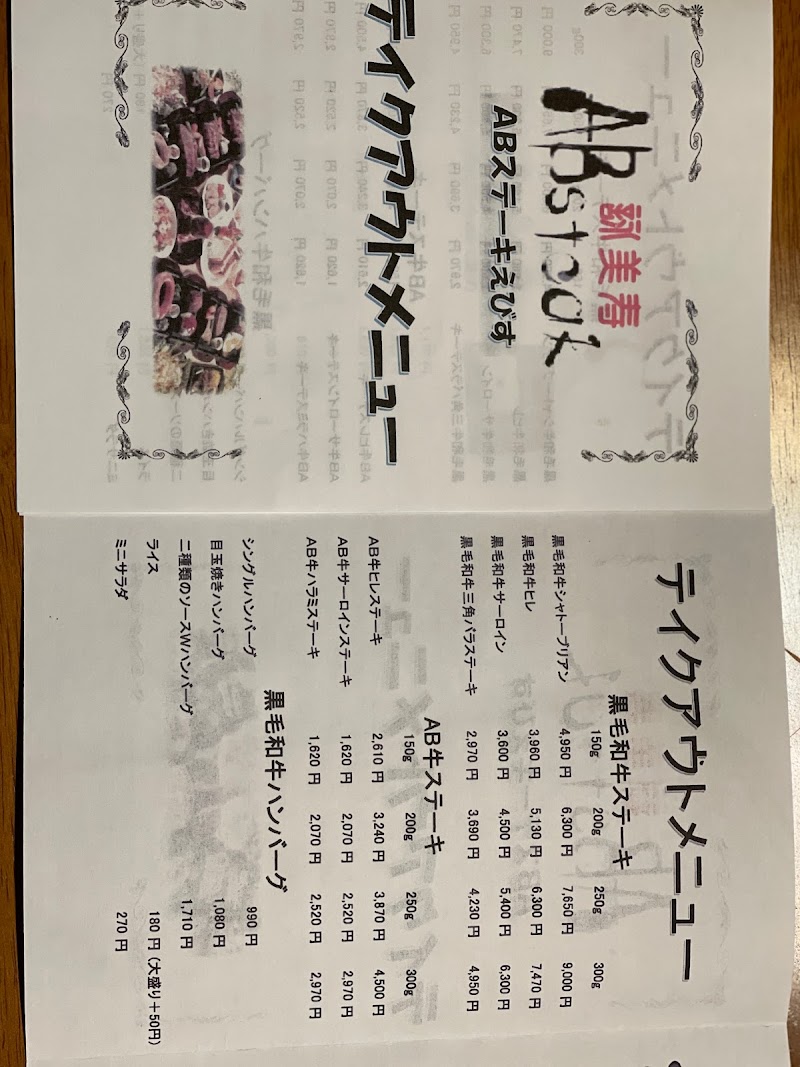 ABsteak
韻美寿
ABステーキえびす
テイクアウトメニュー
テイクアウトメニュー
黒毛和牛ステーキ
150g 200g 250g 300g
黒毛和牛シャトーブリアン 4,950 円 6,300 円 7,650 円 9,000 円
黒毛和牛ヒレ 3,960 円 5,130 円 6,300 円 7,470 円
黒毛和牛サーロイン 3,600 円 4,500 円 5,400 円 6,300 円
黒毛和牛三角バラステーキ 2,970 円 3,690 円 4,230 円 4,950 円
AB牛ステーキ
150g 200g 250g 300g
AB牛ヒレステーキ 2,610 円 3,240 円 3,870 円 4,500 円
AB牛サーロインステーキ 1,620 円 2,070 円 2,520 円 2,970 円
AB牛ハラミステーキ 1,620 円 2,070 円 2,520 円 2,970 円
黒毛和牛ハンバーグ
シングルハンバーグ 990 円
目玉焼きハンバーグ 1,080 円
二種類のソースWハンバーグ 1,710 円
ライス 180 円 (大盛り+50円)
ミニサラダ 270 円